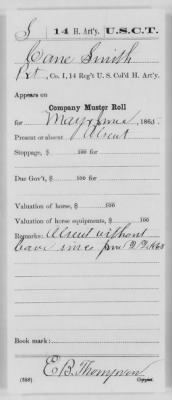 S | 14 H. Art'y. | U.S.C.T.
Cane Smith
Pvt, Co. I, 14 Reg't U. S. Col'd H. Art'y.
Appears on
Company Muster Roll
for May & June, 1865.
Present or absent Absent
Stoppage, $ 100 for
Due Gov't, $ 100 for
Valuation of horse, $ 100
Valuation of horse equipments, $ 100
Remarks: Absent without
leave since June 22 1865
Book mark:
E. B. Thompson
(358) Copyist.